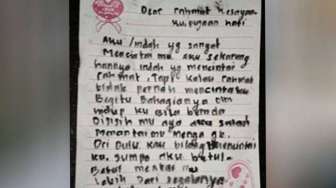 Dear rahmat kesayan
ku, pujaan hati
Aku indah yg sangat
mencintai mu aku sekarang
hannya indah yg mencintai
rahmat. Tapi kalau rahmat
tidak pernah mencintaiku
Begitu Bahagianya
hidup ku bila berada
Disisih mu aya aku
Menantai mu
Dri Dulu kau bilang
ku. sumpa aku betul
Babat mencintai mu
Lebih Dari segalanya